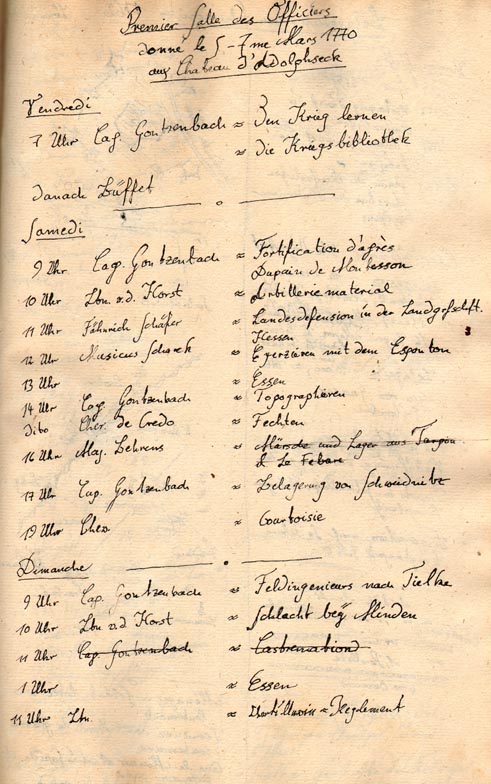 Premier Salle des Officiers
donné le 5-7me Mars 1770
aux Chateau d'Adolphseck
Vendredi
7 Uhr Cap. Gontzenbach ≈ Den Krieg lernen
≈ die Kriegsbibliothek
danach Büffet
Samedi
9 Uhr Cap. Gontzenbach ≈ Fortification d'après
Dupain de Montesson
10 Uhr Ltn. v.d. Horst ≈ Artilleriematerial
11 Uhr Fähnrich Schäfer ≈ Landesdefension in der Landgrafschft.
Hessen
12 Uhr Musicus Schreck ≈ Exerzieren mit dem Esponton
13 Uhr ≈ Essen
14 Uhr Cap. Gontzenbach ≈ Topographieren
Dito Cher. de Credo ≈ Fechten
16 Uhr Maj. Behrens ≈ Märsche und Lager aus
& Le Febure
17 Uhr Cap. Gontzenbach ≈ Belagerung von Schweidnitz
19 Uhr ≈ Courtoisie
Dimanche
9 Uhr Cap. Gontzenbach ≈ Feldingenieurs nach Tielke
10 Uhr Ltn v.d Horst ≈ Schlacht beÿ Minden
11 Uhr Cap. Gontzenbach ≈ Castremation
1 Uhr ≈ Essen
Uhr Ltn. ≈ Reglement